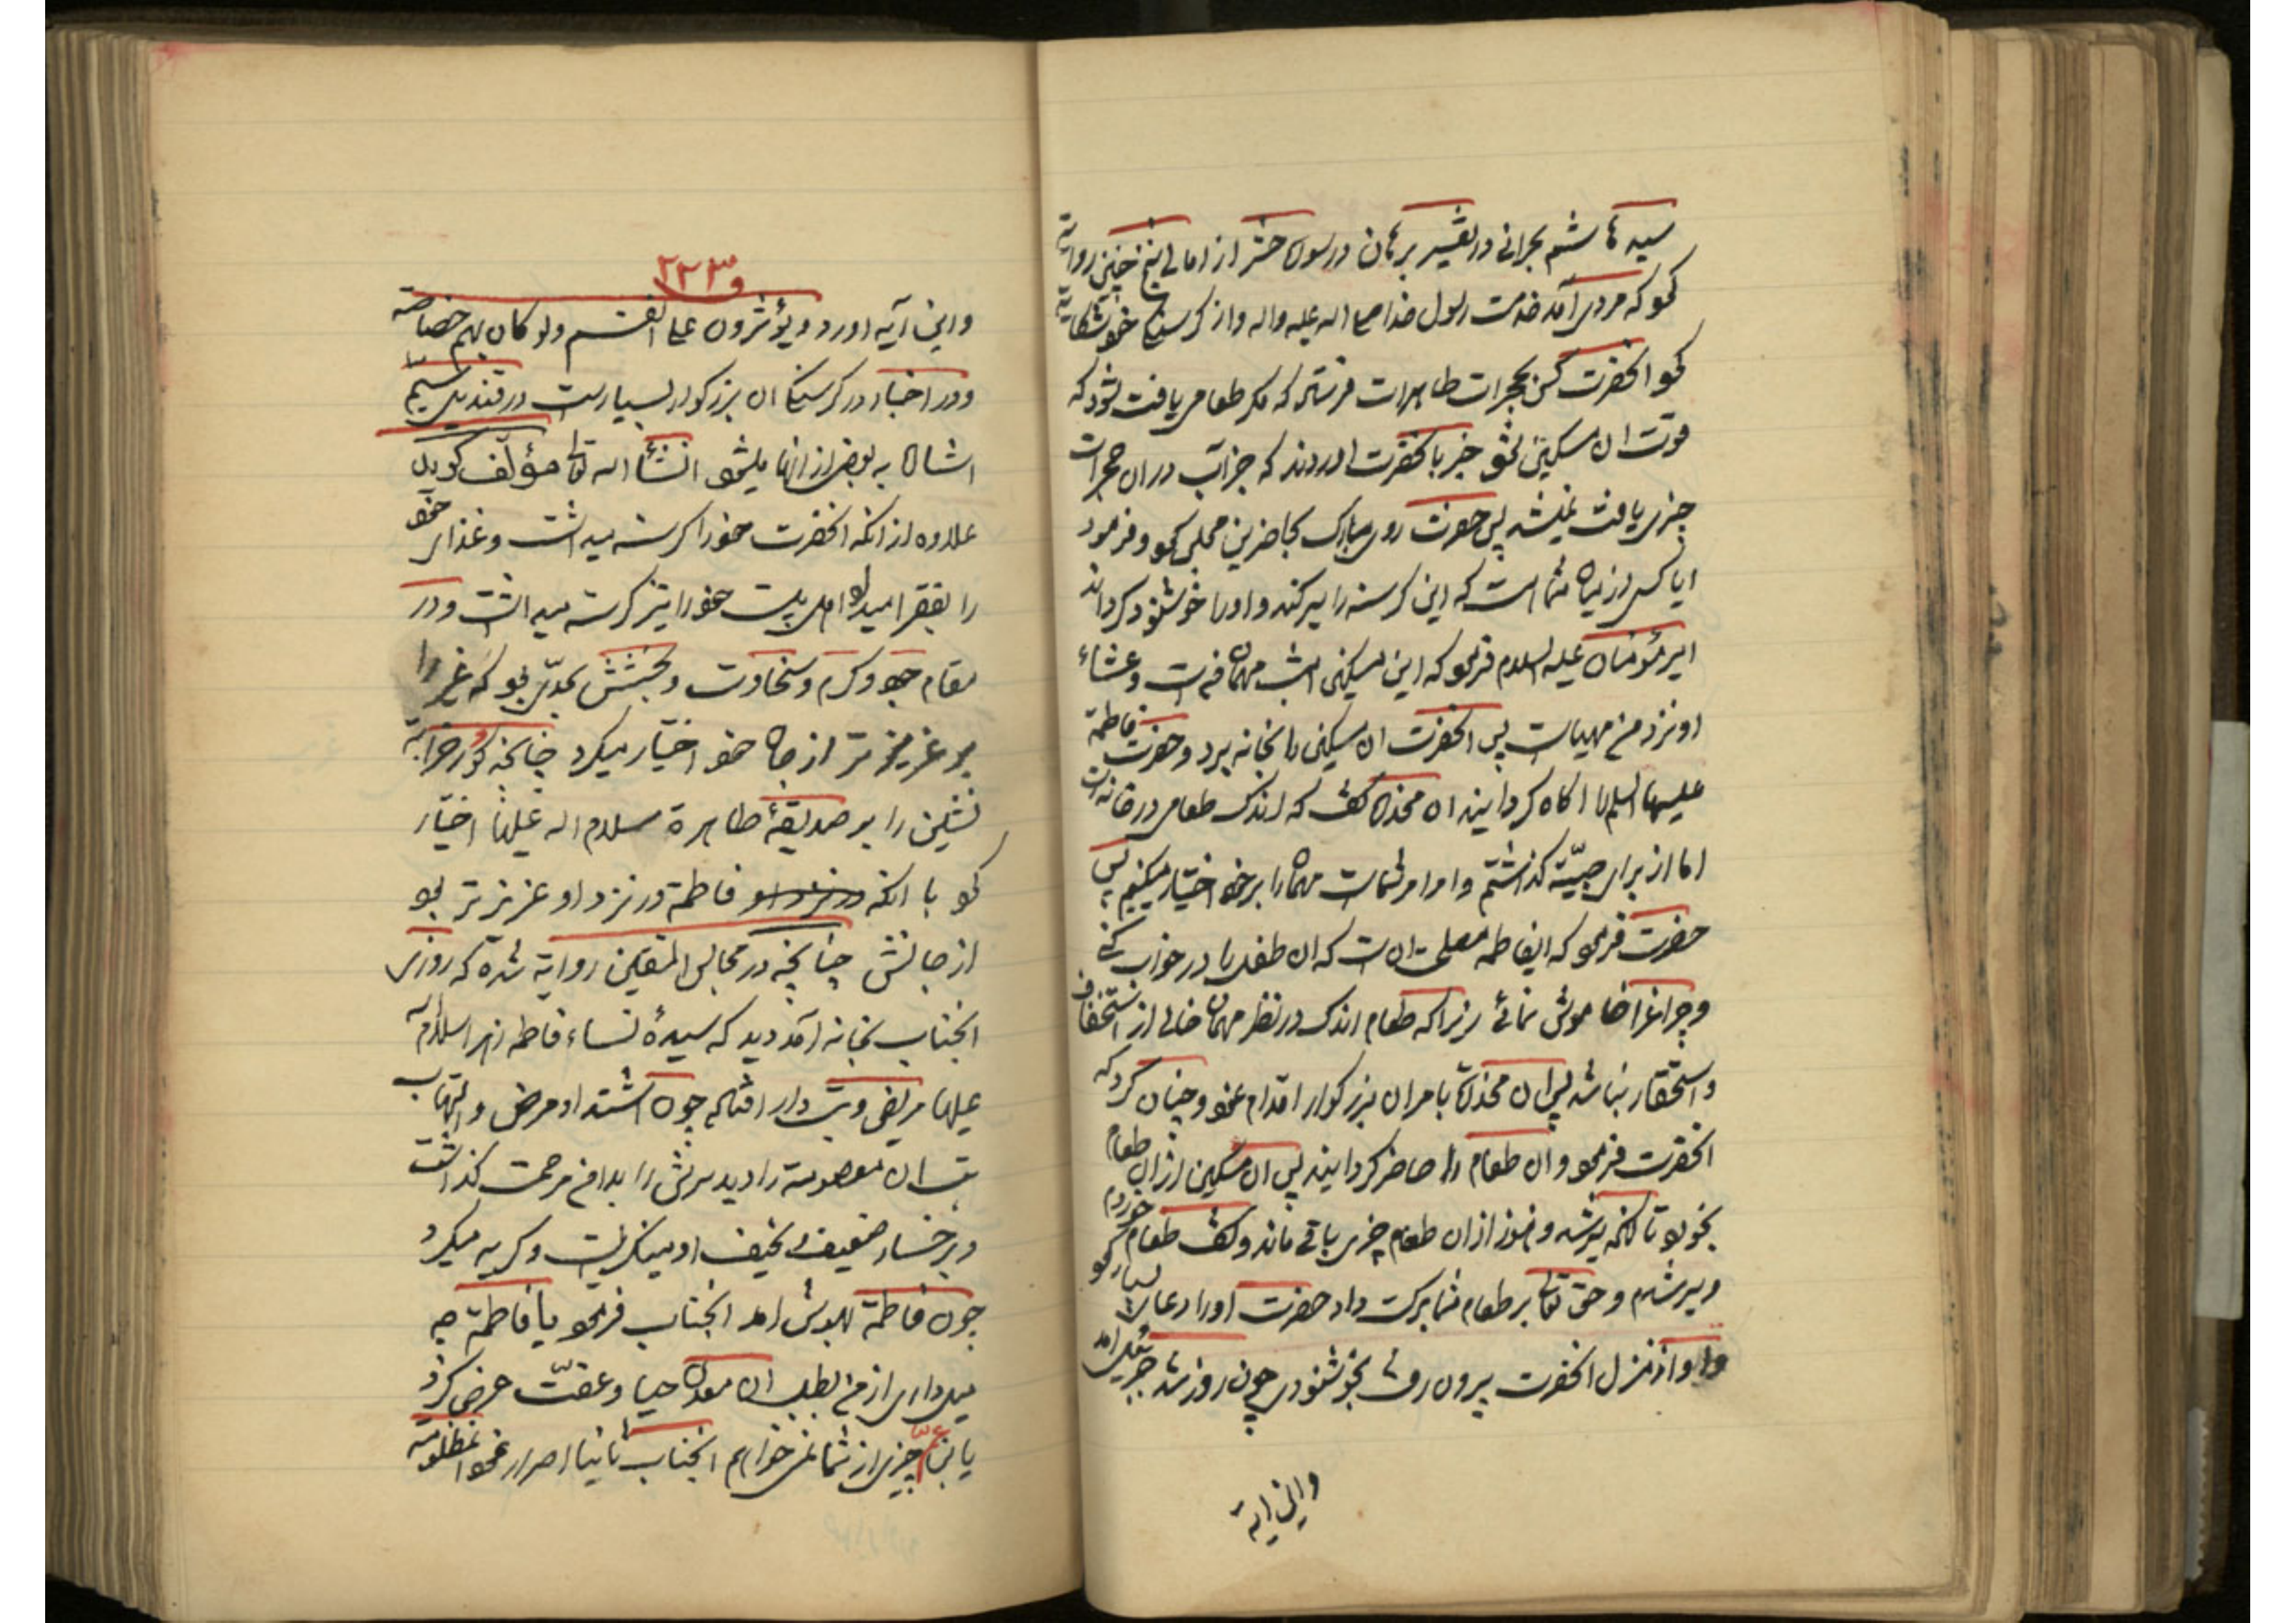 سید هاشم بحرانی در تفسیر برهان در سوره حشر از امالی شیخ چنین روایة
نمود که مردی آمد خدمت رسول خدا صلی اله علیه واله و از کرسنکی خود شکایة
نمود انحضرت کس بحجرات طاهرات فرستاد که مکر طعامی یافت شود که
قوت ان مسکین شود خبر بانحضرت اوردند که جز آب در ان حجرات
چیزی یافت نمیشد پس حضرت روی مبارک بحاضرین مجلس نمود و فرمود
ایا کسی در میان شما است که این کرسنه را سیر کند و اورا خوشنود کرداند
امیر مؤمنان علیه السلام فرمود که این مسکین امشب مهمان منست و عشاء
او نزد من مهیاست پس انحضرت ان مسکین را بخانه برد و حضرت فاطمة
علیها السلام را اکاه کردانید ان مخدره کفت که اندک طعامی در خانه است
اما از برای صبیّه کذاشتم و امر امر شماست مهمان را بر خود اختیار میکنیم پس
حضرت فرمود که ایفاطمه مصلحت انست که ان طفل را در خواب کنی
و چراغ را خاموش نمائی زیرا که طعام اندک در نظر مهمان خالی از استخفاف
و استحقار نباشد پس ان مخدره بامر ان بزرکوار اقدام نمود و چنان کرد که
انحضرت فرمود و ان طعام را حاضر کردانید پس ان مسکین از ان طعام
بخورد تا انکه سیر شد و هنوز از ان طعام چیزی باقی ماند و کفت طعام خوردم
و سیر شدم و حق تعالی بر طعام شما برکت داد حضرت اورا دعای بسیار نمود
و او از منزل انحضرت بیرون رفت بخوشنودی چون روز شد جبرئیل امد
واین ایة
و۲۲۳
واین آیه اورد و یؤثرون علی انفسهم ولو کان بهم خصاصة
و در اخبار در کرسنکی ان بزرکوار بسیارست در قندیل سیم
اشاره به بعضی از انها میشود انشأ اله تعالی مؤلف کوید
علاوه از انکه انحضرت خود را کرسنه میداشت و غذای خود
را بفقرا میداد اهل بیت خود را نیز کرسنه میداشت و در
مقام جود و کرم و سخاوت و بخشش بحدّی بود که غیر را
بر عزیز تر از جان خود اختیار میکرد چنانچه کور خرابه
نشین را بر صدیقهٔ طاهرة سلام اله علیها اختیار
نمود با انکه در نزد او فاطمة در نزد او عزیز تر بود
از جانش چنانچه در مجالس المتقین روایة شده که روزی
انجناب بخانه آمد دید که سیدهٔ نساء فاطمه زهرا سلام اله
علیها مریض و تب دار افتاده چون اشتداد مرض و التهاب
تب ان معصومة را دید سرش را بدامن مرحمت کذاشت
و برخسار ضعیف و نحیف او مینکریست و کریه میکرد
چون فاطمة بهوش امد انجناب فرمود یا فاطمة چه
میل داری از من بطلب ان معدن حیا و عفّت عرض کرد
یابن عمّ چیزی از شما نمیخواهم انجناب ثانیا اصرار نمود انمظلومة